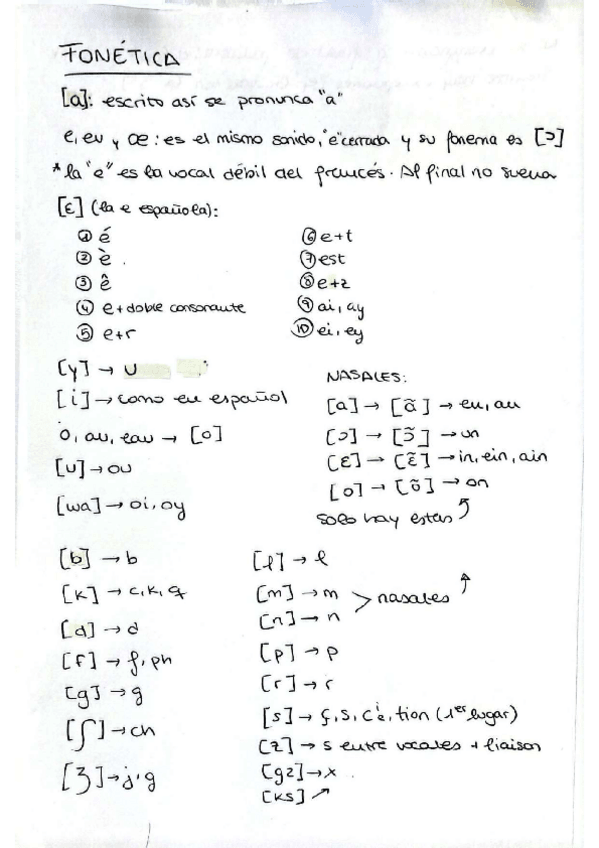 FONÉTICA
[a]: escrito así se pronunca "a"
e, eu y œ: es el mismo sonido, "e" cerrada y su fonema es [ɔ]
* la "e" es la vocal débil del francés. Al final no suena
[ε] (la e española):
① é
② è
③ ê
④ e + doble consonante
⑤ e+r
⑥ e+t
⑦ est
⑧ e+z
⑨ ai, ay
⑩ ei, ey
[y] → u
[i] → como en español
o, au, eau → [o]
[u] → ou
[wa] → oi, oy
NASALES:
[a] → [ã] → en, an
[ɔ] → [ɔ̃] → un
[ε] → [ε̃] → in, ein, ain
[o] → [õ] → on
solo hay estas
[b] → b
[k] → c, k, q
[d] → d
[f] → f, ph
[g] → g
[ʃ] → ch
[ʒ] → j, g
[l] → l
[m] → m
[n] → n
> nasales ↑
[p] → p
[r] → r
[s] → ç, s, c i/e, tion (1er lugar)
[z] → s entre vocales + liaison
[gz] → x
[ks] ↗